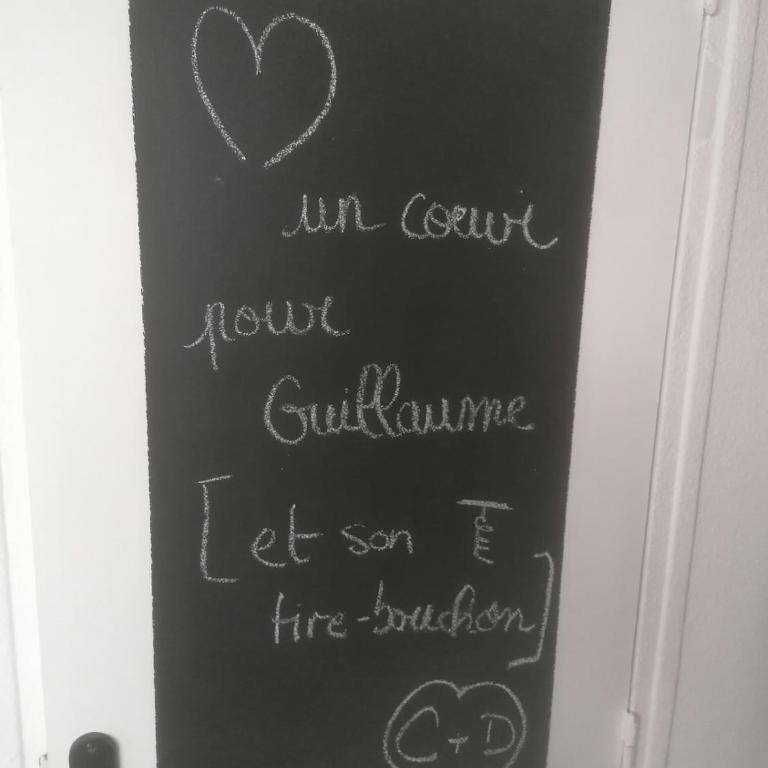 un coeur
pour
Guillaume
[et son
tire-bouchon]
C+D